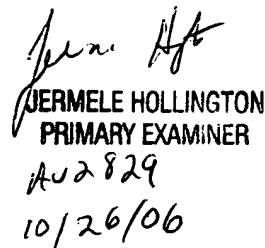 JERMELE HOLLINGTON
PRIMARY EXAMINER
AU2829
10/26/06